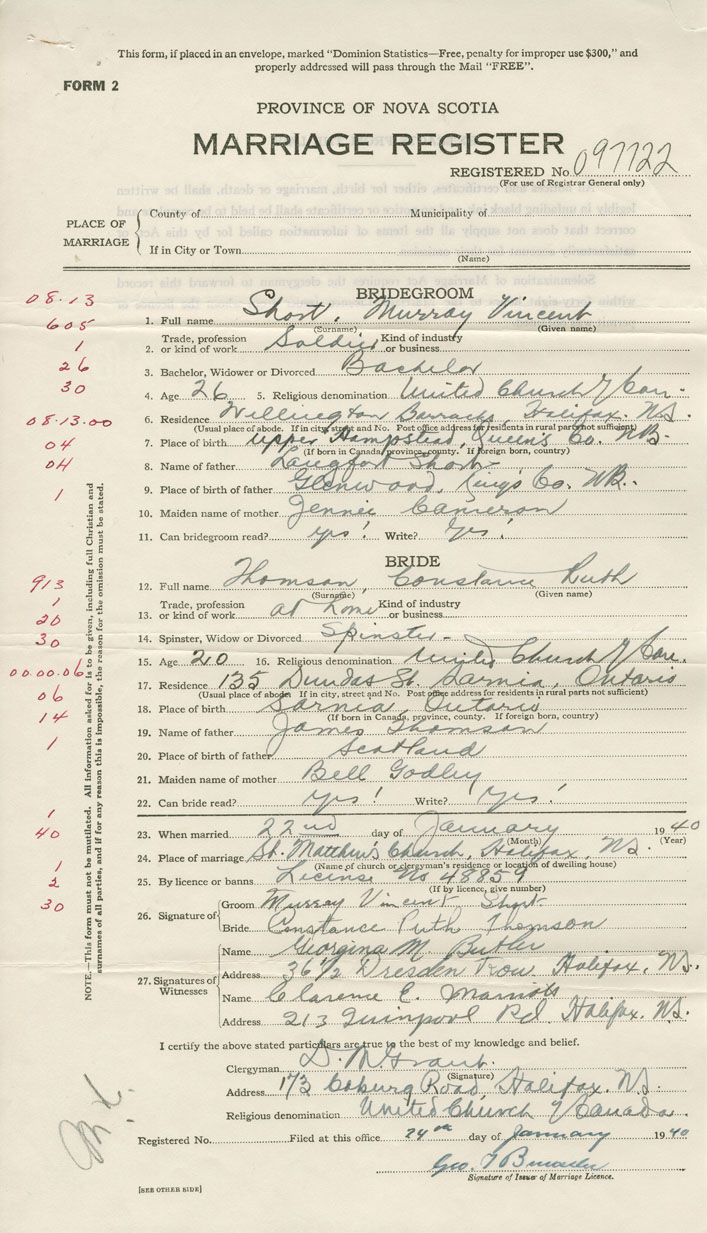 This form, if placed in an envelope, marked "Dominion Statistics—Free, penalty for improper use $300," and
properly addressed will pass through the Mail "FREE".
FORM 2
PROVINCE OF NOVA SCOTIA
MARRIAGE REGISTER
REGISTERED No. 097722
(For use of Registrar General only)
PLACE OF MARRIAGE
County of Municipality of
If in City or Town
(Name)
BRIDEGROOM
08.13
605
1. Full name Short, Murray Vincent
(Surname) (Given name)
1
2. Trade, profession or kind of work Soldier Kind of industry or business
26
3. Bachelor, Widower or Divorced Bachelor
30
4. Age 26 5. Religious denomination United Church of Can.
08.13.00
6. Residence Wellington Barracks, Halifax. N.S.
(Usual place of abode. If in city, street and No. Post office address for residents in rural parts not sufficient)
04
7. Place of birth Upper Hampstead, Queen's Co. N.B.
(If born in Canada, province, county. If foreign born, country)
04
8. Name of father Langfort Short
1
9. Place of birth of father Glenwood, King's Co. N.B.
10. Maiden name of mother Jennie Cameron
11. Can bridegroom read? yes! Write? Yes!
BRIDE
913
12. Full name Thomson, Constance Ruth
(Surname) (Given name)
1
20
13. Trade, profession or kind of work at home Kind of industry or business
30
14. Spinster, Widow or Divorced Spinster-
15. Age 20 16. Religious denomination United Church of Can.
00.00.06
17. Residence 135 Dundas St. Sarnia, Ontario
(Usual place of abode. If in city, street and No. Post office address for residents in rural parts not sufficient)
06
18. Place of birth Sarnia, Ontario
(If born in Canada, province, county. If foreign born, country)
14
19. Name of father James Thomson
1
20. Place of birth of father Scotland
21. Maiden name of mother Bell Godley
22. Can bride read? yes! Write? yes!
1
40
23. When married 22nd day of January 1940
(Month) (Year)
24. Place of marriage St. Matthew's Church, Halifax, N.S.
(Name of church or clergyman's residence or location of dwelling house)
1
2
25. By licence or banns License No 48859
(If by licence, give number)
30
26. Signature of
Groom Murray Vincent Short
Bride Constance Ruth Thomson
27. Signatures of Witnesses
Name Georgina M. Butler
Address 36 1/2 Dresden Row Halifax, N.S.
Name Clarence E. Marriott
Address 213 Quinpool Rd. Halifax. N.S.
I certify the above stated particulars are true to the best of my knowledge and belief.
Clergyman D. M. Grant.
(Signature)
Address 173 Coburg Road, Halifax. N.S.
Religious denomination United Church of Canada.
Registered No. Filed at this office 24th day of January 1940
Geo.
Signature of Issuer of Marriage Licence.
[SEE OTHER SIDE]
NOTE.—This form must not be mutilated. All information asked for is to be given, including full Christian and
surnames of all parties, and if for any reason this is impossible, the reason for the omission must be stated.